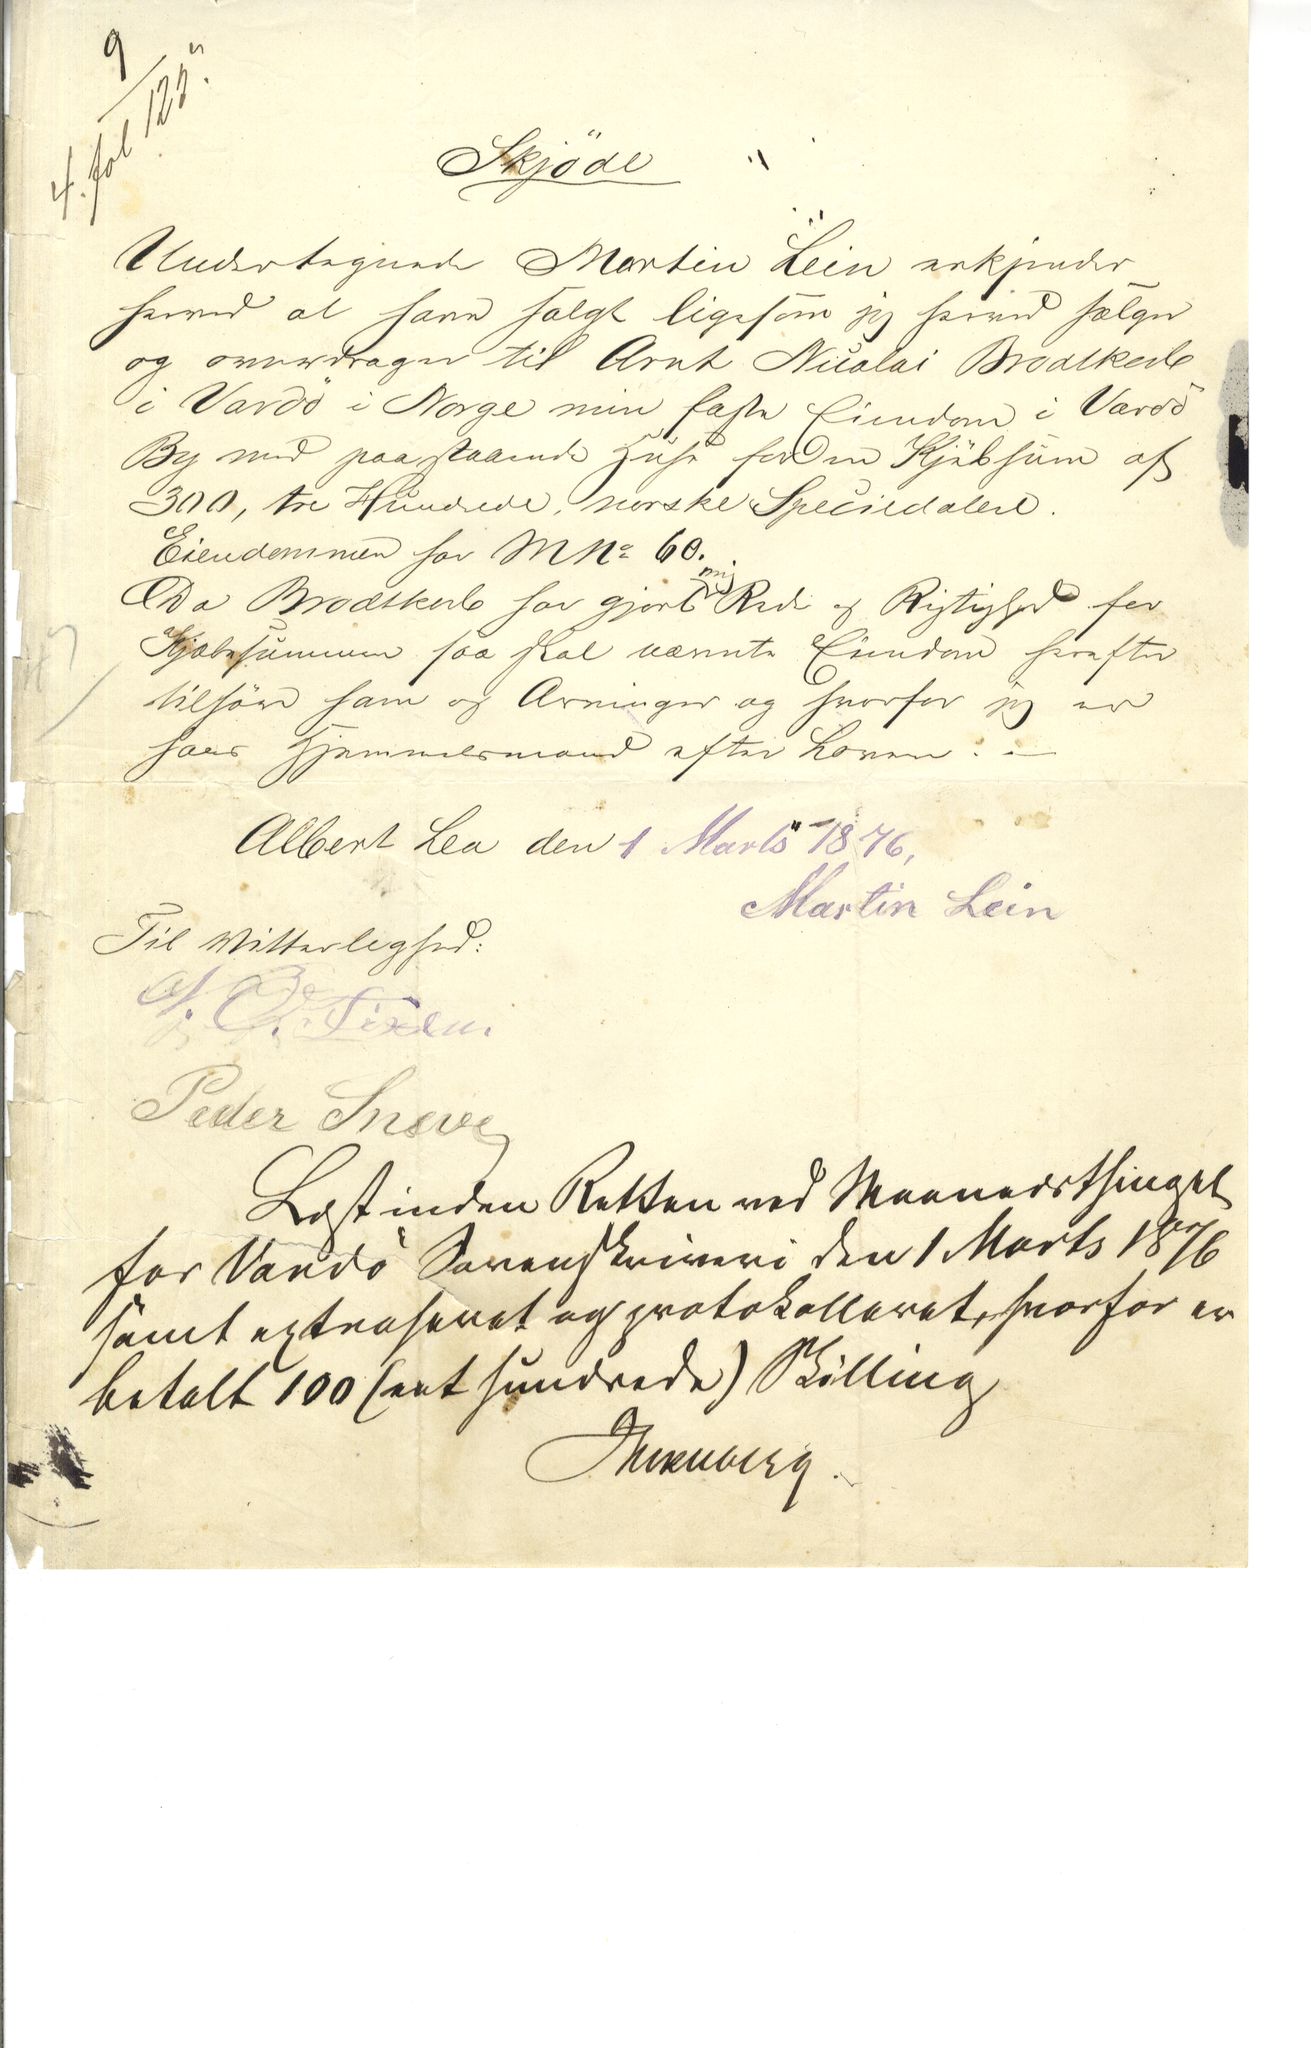 9
4. fol 123.
Skjöde
Undertegnede Martin Lein erkjender
herved at have solgt ligesom jeg herved sælger
og overdrager til Arnt Nicolai Brodtkorb
i Vardö i Norge min faste Eiendom i Vardö
By med paastaaende Huse for en Kjöbsum af
300, tre Hundrede, norske Speciedalere.
Eiendommen har M No 60.
Da Brodtkorb har gjort mig Rede og Rigtighed for
Kjøbesummen saa skal nævnte Eiendom herefter
tilhöre ham og Arvinger og hvorfor jeg er
hans Hjemmelsmand efter Loven. —
Albert Lea den 1 Marts 1876,
Martin Lein
Til Vitterlighed:
Peder Sneve
Læst inden Retten ved Maanedsthinget
for Vardö Sorenskriveri den 1 Marts 1876
samt extraheret og protokolleret, hvorfor er
betalt 100 (eet hundrede) Skilling